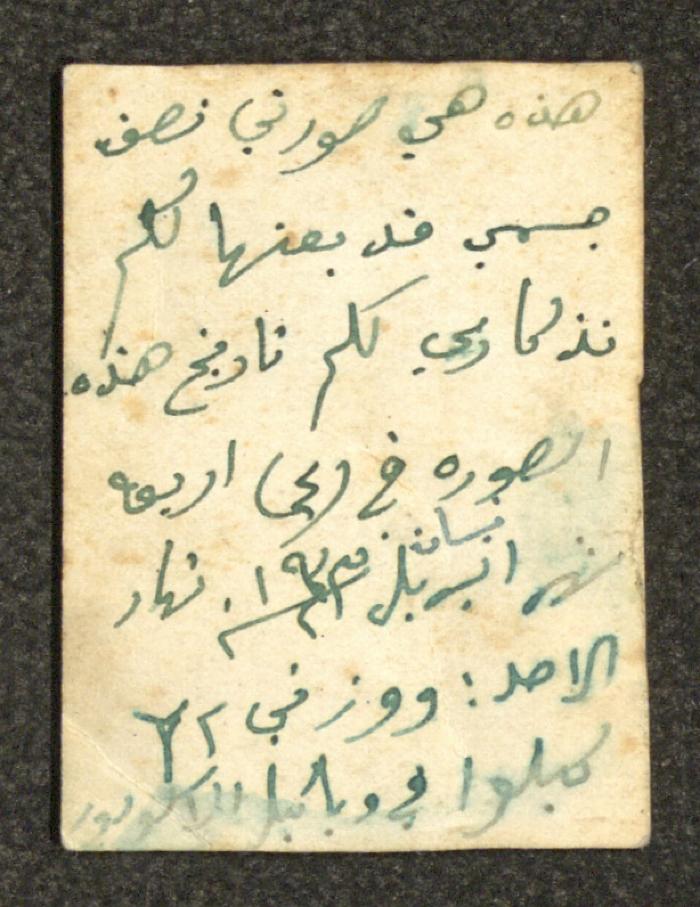 هذه هي صورتي نصف
جسمي قد بعتها لكم
تذكاري لكم تاريخ هذه
الصوره في اربعه
نيسان
شهر ابريل نهار
الاحد : ووزني ٧٢
كيلوا